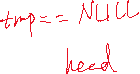 tmp == NULL
head